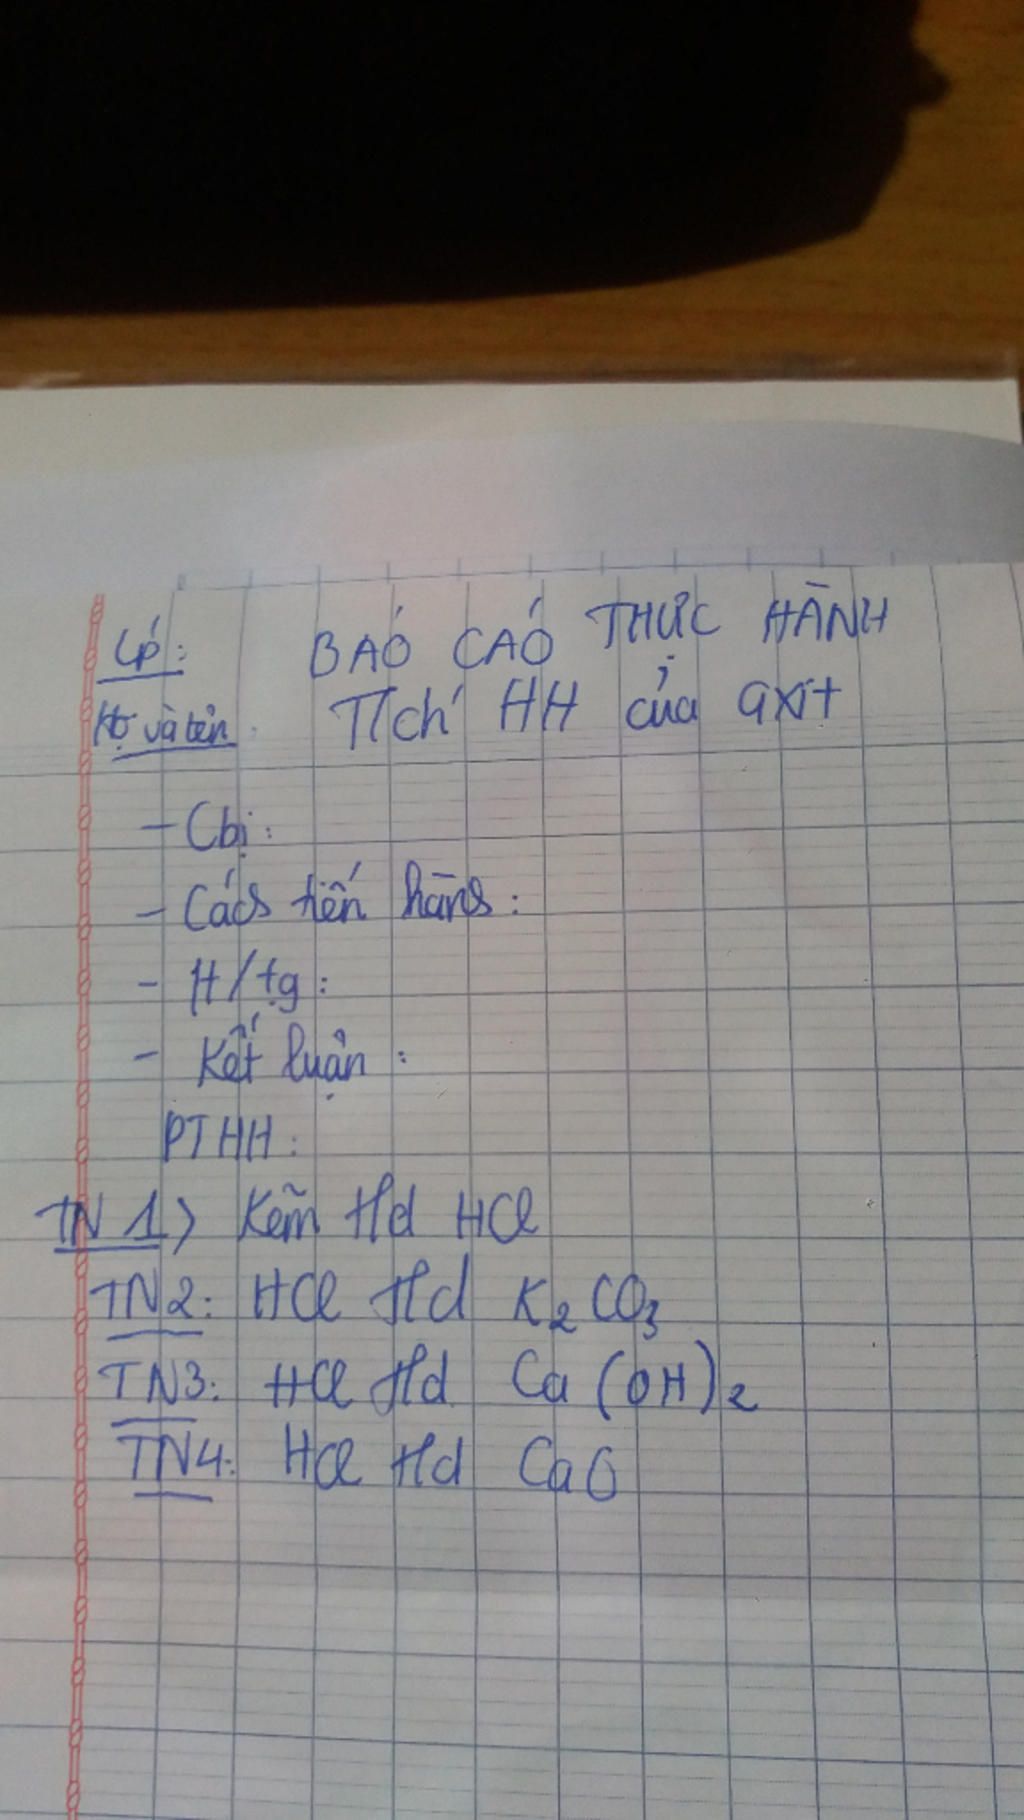 Lớp: BÁO CÁO THỰC HÀNH
Họ và tên: Tích HH của axit
- Cbị:
- Cách tiến hành:
- H/tg:
- Kết luận:
PTHH:
TN 1> Kẽm t/d HCl
TN2: HCl t/d K₂CO₃
TN3: HCl t/d Ca(OH)₂
TN4: HCl t/d CaO